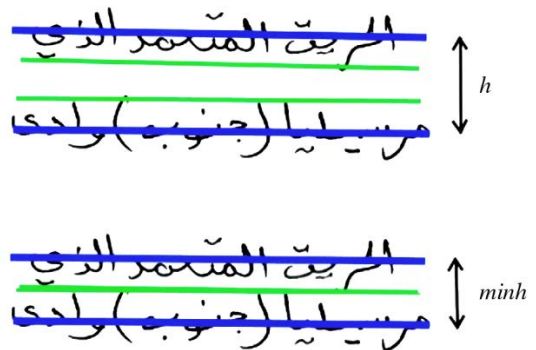 الحريق المتعمد الذي
h
مرسيليا (جنوب) وادى
الحريق المتعمد الذي
minh
مرسيليا (جنوب) وادى